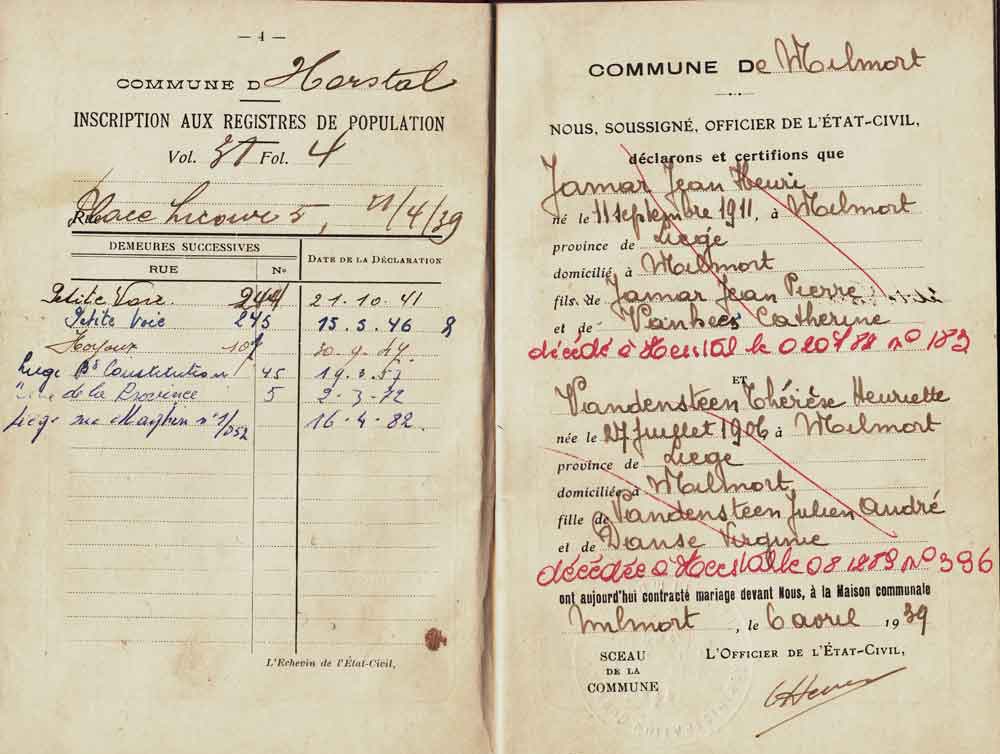 — 4 —
COMMUNE D Herstal
INSCRIPTION AUX REGISTRES DE POPULATION
Vol. Fol. 4
Rue Place Licour 5, 21/4/39
DEMEURES SUCCESSIVES
RUE No DATE DE LA DÉCLARATION
Petite Voie. 244 21.10.41
Petite Voie 245 15.5.46
Hoyoux 107 30.9.47.
Liege Bd Constitution 45 19.3.57
de la Province 5 2-3-72
Liége rue Maghin n° 16-4-82.
L'Echevin de l'État-Civil,
COMMUNE De Milmort
NOUS, SOUSSIGNÉ, OFFICIER DE L'ÉTAT-CIVIL,
déclarons et certifions que
Jamar Jean Henri
né le 11 septembre 1911, à Milmort
province de Liége
domicilié à Milmort
fils de Jamar Jean Pierre
et de Vanhees Catherine
décédé à Herstal le 020788 no 183
ET
Vandensteen Thérèse Henriette
née le 27 juillet 1906, à Milmort
province de Liege
domiciliée à Milmort
fille de Vandensteen Julien André
et de Danse Virginie
décédée à Herstal le no 396
ont aujourd'hui contracté mariage devant Nous, à la Maison communale
Milmort, le 6 avril 1939
SCEAU
DE LA
COMMUNE
L'OFFICIER DE L'ÉTAT-CIVIL,